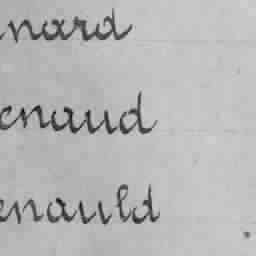 nard
enaud
enauld